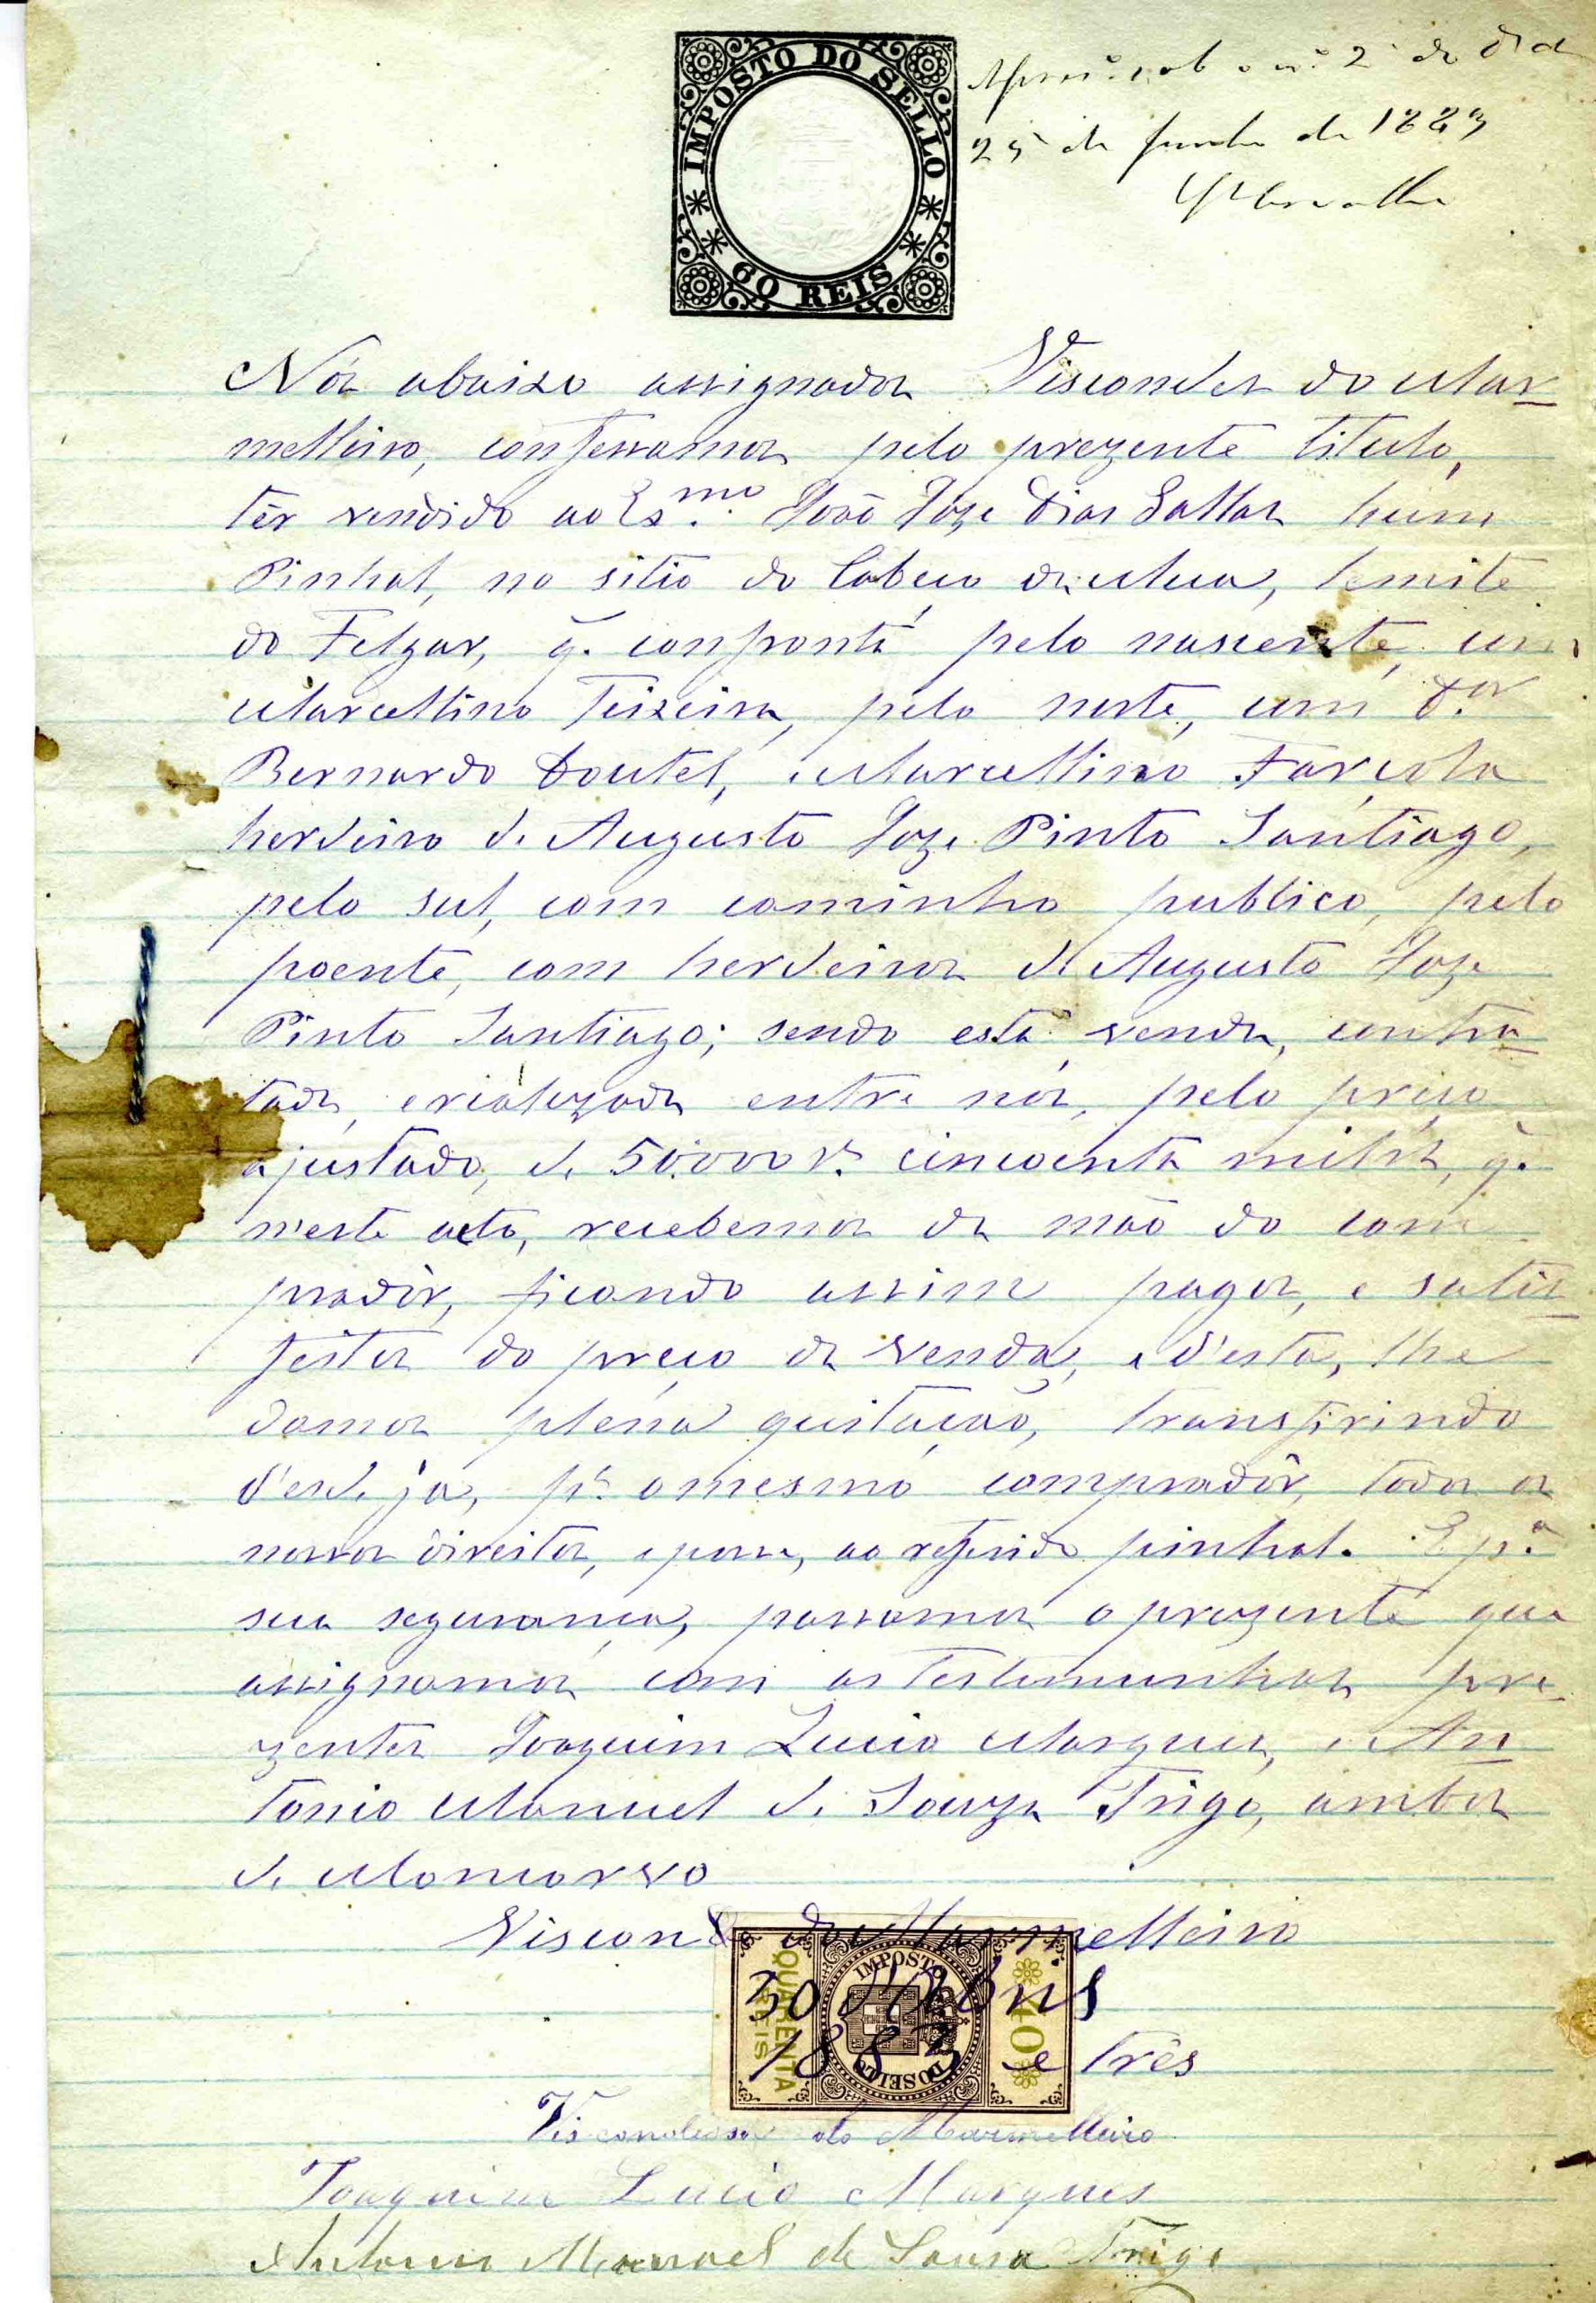 IMPOSTO DO SELLO
60 REIS
sob o nº 2 do
25 de Junho de 1883
Carvalho
Nós abaixo assignados Viscondes do Mar-
melleiro, confessamos pelo prezente titulo,
ter vendido ao Exmo. João Joze Dias Gallas hum
Pinhal, no sitio do Cabeço da Mua, lemite
do Felgar, q. confronta pelo nascente, com
Marcellino Teixeira, pelo norte, com Dor.
Bernardo Doutel, e Marcellino Farçola
herdeiro de Augusto Joze Pinto Santiago,
pelo sul, com caminho publico, pelo
poente, com herdeiros de Augusto Joze
Pinto Santiago; sendo esta venda, contra-
tada, e rialezada entre nós, pelo preço
ajustado, de 50:000 rs. cincoenta mil rs, q.
n'este acto, recebemos da mão do com
pradôr, ficando assim pagos, e satis-
feitos do preço da venda, e d'esta, lhe
damos plena quitação, transfirindo
d'esde já, pa. o mesmo compradôr, todos os
nossos direitos, e posse, ao referido pinhal. E pa.
sua segurança, passamos o prezente que
assignamos com as testemunhas pre-
zentes Joaquim Lucio Marques, e An-
tonio Manuel de Souza Trigo, ambos
de Moncorvo
Visconde do Marmelleiro
IMPOSTO DO SELLO
QUARENTA REIS
40
30 d'Abril
1883 e três
Viscondessa do Marmelleiro
Joaquim Lucio Marques
Antonio Manoel de Sousa Trigo